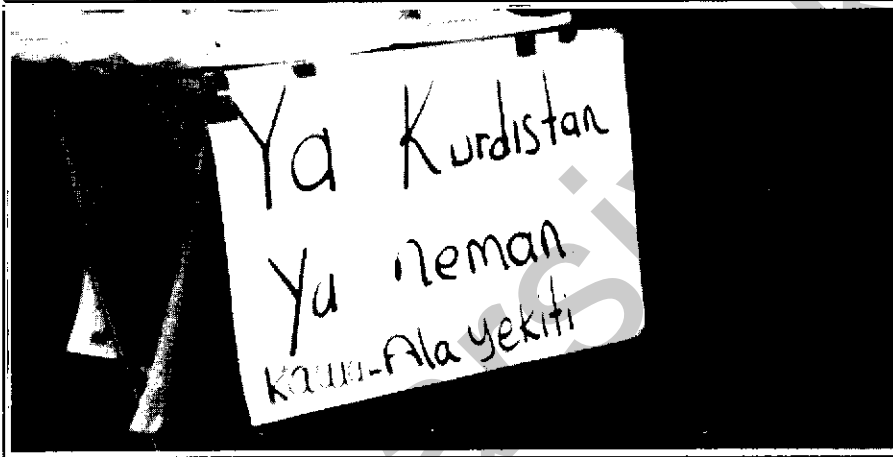 Ya Kurdistan
Ya neman
Kawa-Ala yekiti